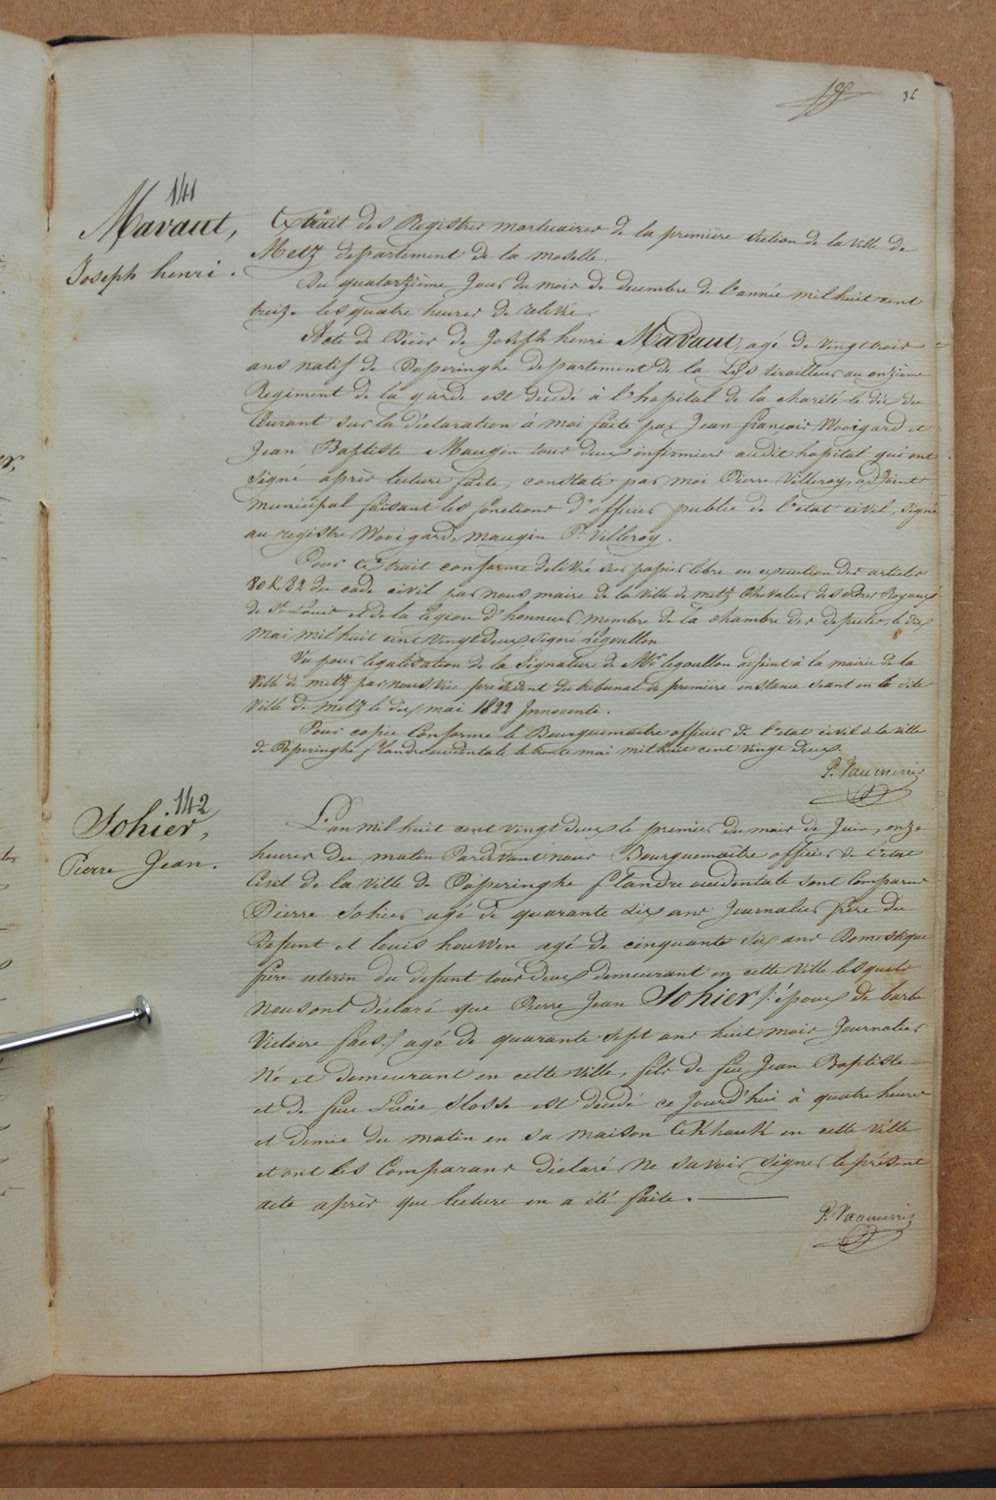 36
141
Mavaut,
Joseph henri.
Extrait des Registres mortuaires de la première section de la Ville de
Metz département de la moselle.
Du quatorzième Jour du mois de decembre de l'année mil huit cent
treize les quatre heures de relevée.
Acte de Décès de Joseph henri Mavaut, agé de vingt trois
ans natif de Poperinghe departement de la Lys tirailleur au onzième
Regiment de la garde est decedé à l'hopital de la charité le dix du
Courant sur la déclaration à moi faite par Jean françois Woirgard et
Jean Baptiste Maugin tous deux infirmiers audit hopital qui ont
signé après lecture faite, constaté par moi Pierre Villeroy, adjoint
municipal faisant les fonctions d'officier public de l'etat civil, signé
au registre Woirgard, maugin P. Villeroy.
Pour Extrait conforme delivré sur papier libre en execution des articles
80 & 82 du code civil par nous maire de la Ville de metz Chevalier des ordres Royaux
de St Louis et de la Legion d'honneur, membre de la chambre des deputés, le dix
mai mil huit cent vingt deux signé Legoullon
Vu pour legalisation de la signature de Mr legoullon adjoint à la mairie de la
Ville de metz par nous Vice president du tribunal de première instance séant en la dite
Ville de Metz le dix mai 1822 Innocenti.
Pour copie Conforme le Bourguemaitre officier de l'etat civil de la ville
de Poperinghe flandre occidentale le trente mai mil huit cent vingt deux
142
Sohier,
Pierre Jean.
L'an mil huit cent vingt deux le premier du mois de Juin, onze
heures du matin Pardevant nous Bourguemaître officier de l'etat
Civil de la Ville de Poperinghe flandre occidentale sont Comparus
Pierre Sohier agé de quarante six ans Journalier frère du
Defunt et louis houwen agé de cinquante six ans Domestique
frère uterin du defunt tous deux demeurant en cette Ville lesquels
nous ont déclaré que Pierre Jean Sohier /: époux de barbe
Victoire faes :/ agé de quarante sept ans huit mois Journalier
Né et demeurant en cette Ville, fils de feu Jean Baptiste
et de feue Lucie Slosse est decedé ce Jourd'hui à quatre heures
et demie du matin en sa maison Ekhouk en cette Ville
et ont les Comparans déclaré Ne savoir signer le présent
acte après que lecture en a été faite.